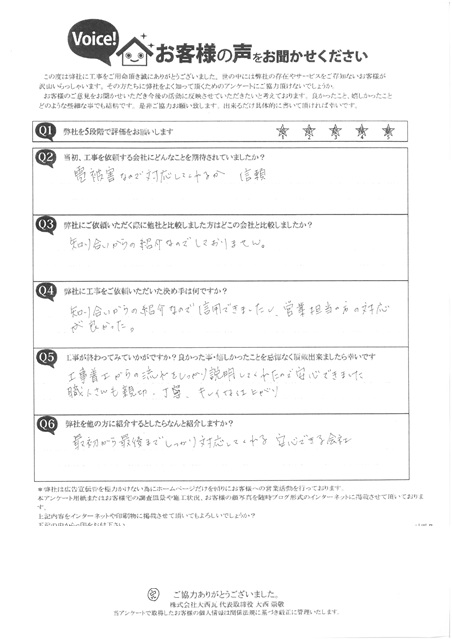 Voice!
お客様の声をお聞かせください
この度は弊社に工事をご用命頂き誠にありがとうございました。世の中には弊社の存在やサービスをご存知ないお客様が
沢山いらっしゃいます。その方たちに弊社をよく知って頂くためのアンケートにご協力頂けないでしょうか。
お客様のご意見をお聞かせいただき今後の活動に反映させていただきたいと考えております。良かったこと、嬉しかったこと
どのような些細な事でも結構です。是非ご協力お願い致します。出来るだけ具体的に書いて頂ければ幸いです。
Q1 弊社を5段階で評価をお願いします
1 2 3 4 5
Q2 当初、工事を依頼する会社にどんなことを期待されていましたか?
雹被害なので対応してくれるか 信頼
Q3 弊社にご依頼いただく際に他社と比較しました方はどこの会社と比較しましたか?
知り合いからの紹介なのでしておりません。
Q4 弊社に工事をご依頼いただいた決め手は何ですか?
知り合いからの紹介なので信用できましたし、営業担当の方の対応
が良かった。
Q5 工事が終わってみていかがですか?良かった事・嬉しかったことを忌憚なく頂戴出来ましたら幸いです
工事着工からの流れをしっかり説明してくれたので安心できました
職人さんも親切、丁寧、キレイな仕上がり
Q6 弊社を他の方に紹介するとしたらなんと紹介しますか?
最初から最後までしっかり対応してくれる 安心できる会社
*弊社は広告宣伝費を極力かけない為にホームページだけを頼りにお客様への営業活動を行っております。
本アンケート用紙またはお客様宅の調査風景や施工状況、お客様の顔写真を随時ブログ形式のインターネットに掲載させて頂いております。
上記内容をインターネットや印刷物に掲載させて頂いてもよろしいでしょうか?
ご協力ありがとうございました。
株式会社大西瓦 代表取締役 大西
当アンケートで取得したお客様の個人情報は関係法規に基づき厳正に管理いたします。